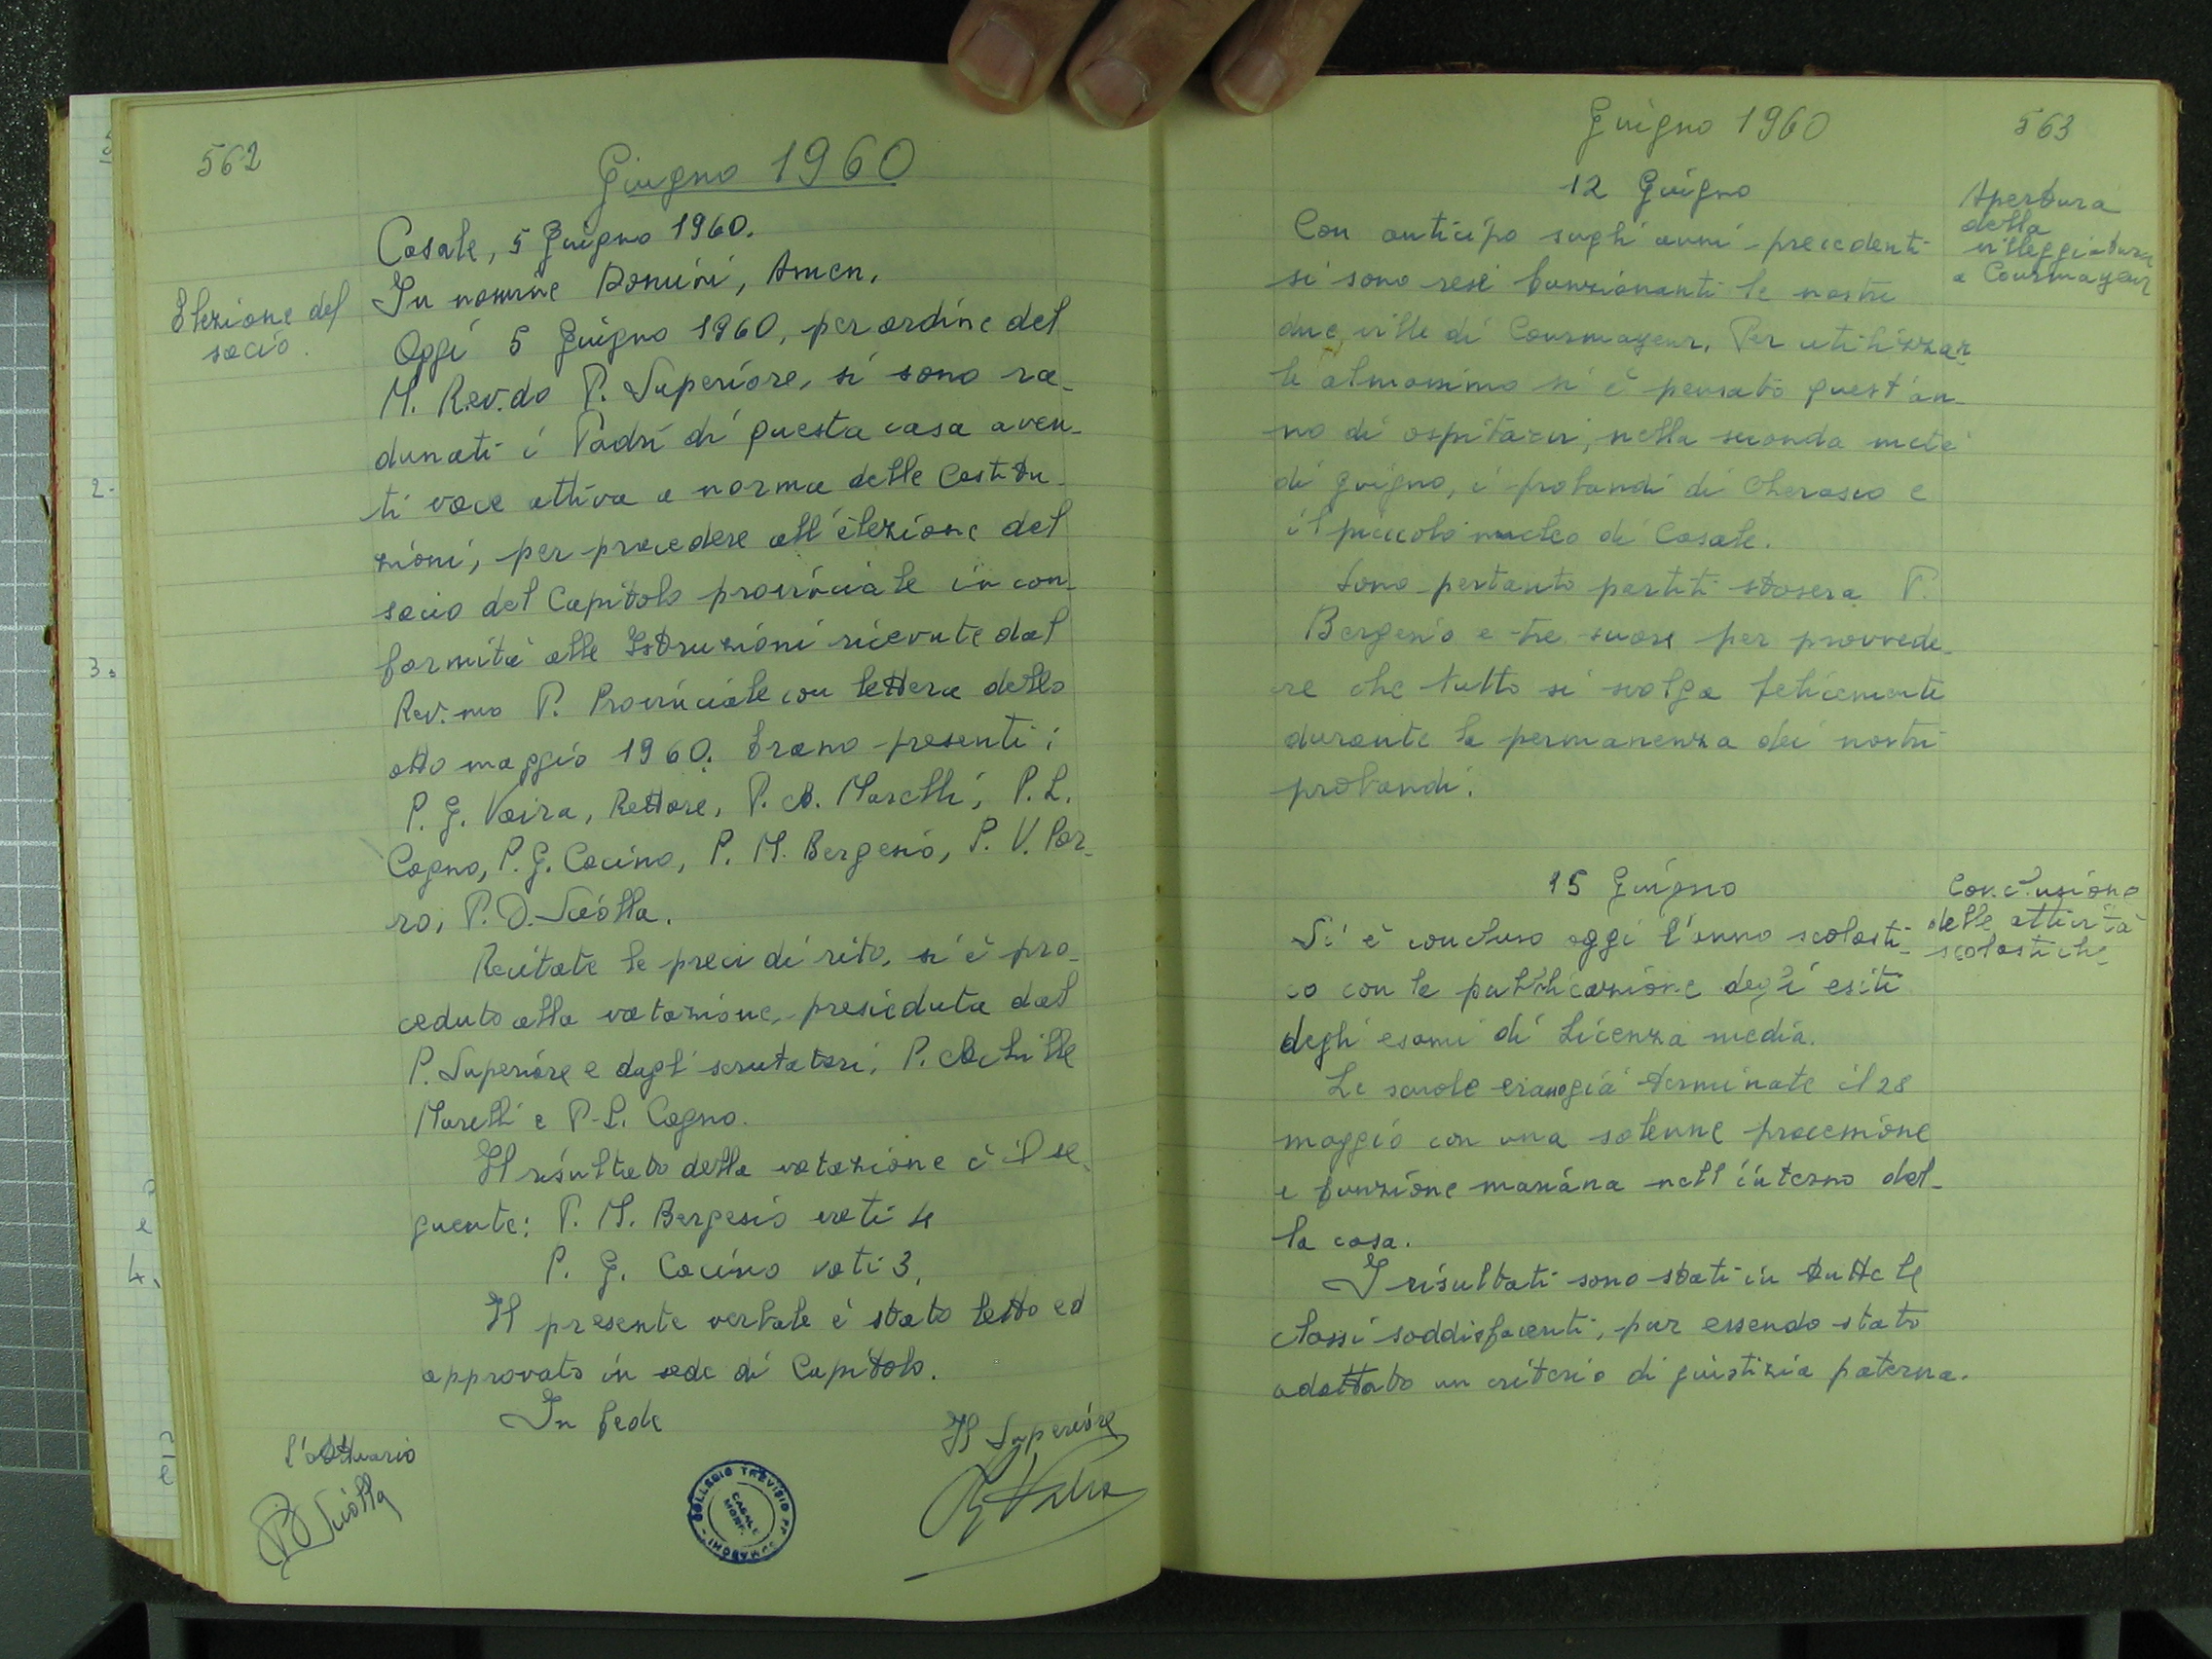 562
Giugno 1960
Elezione del
socio.
Casale, 5 Giugno 1960.
In nomine Domini, Amen.
Oggi 5 Giugno 1960, per ordine del
M. Rev.do P. Superiore, si sono ra-
dunati i Padri di questa casa aven-
ti voce attiva a norma delle Costitu-
zioni, per procedere all'elezione del
socio del Capitolo provinciale in con-
formità alle Istruzioni ricevute dal
Rev.mo P. Provinciale con lettera dello
otto maggio 1960. Erano presenti:
P. G. Vaira, Rettore, P. A. Marelli, P. L.
Cogno, P. G. Cocino, P. M. Bergesio, P. V. Por-
ro, P. D. Sciolla.
Recitate le preci di rito, si è pro-
ceduto alla votazione, presieduta dal
P. Superiore e dagli scrutatori, P. Achille
Marelli e P. L. Cogno.
Il risultato della votazione è il se-
guente: P. M. Bergesio voti 4
P. G. Cocino voti 3.
Il presente verbale è stato letto ed
approvato in sede di Capitolo.
In fede
l'attuario
Sciolla
COLLEGIO TREVISIO PP. SOMASCHI
CASALE
MONF.
Il Superiore
Vaira
Giugno 1960
563
12 Giugno
Apertura
della
villeggiatura
a Courmayeur
Con anticipo sugli anni precedenti
si sono rese funzionanti le nostre
due ville di Courmayeur. Per utilizzar-
le al massimo si è pensato quest'an-
no di ospitarvi, nella seconda metà
di giugno, i probandi di Cherasco e
il piccolo nucleo di Casale.
Sono pertanto partiti stasera P.
Bergesio e tre suore per provvede-
re che tutto si svolga felicemente
durante la permanenza dei nostri
probandi.
15 Giugno
Conclusione
delle attività
scolastiche
Si è concluso oggi l'anno scolasti-
co con la pubblicazione degli esiti
degli esami di Licenza media.
Le scuole erano già terminate il 28
maggio con una solenne processione
e funzione mariana nell'interno del-
la casa.
I risultati sono stati in tutte le
classi soddisfacenti, pur essendo stato
adottato un criterio di giustizia paterna.